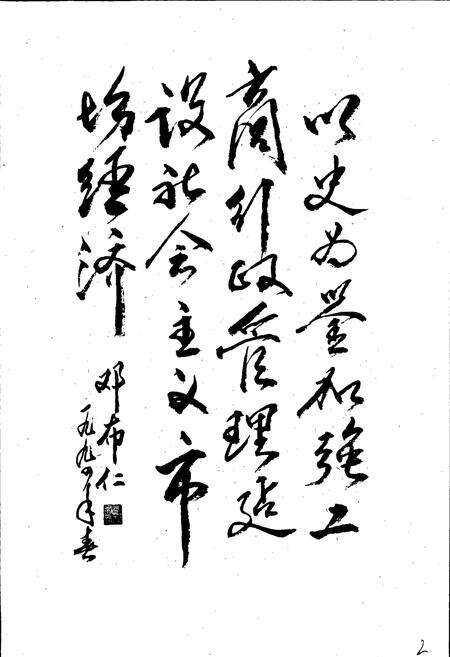 以史为鉴加强工
商行政管理建
设社会主义市
场经济
邓布仁
一九九四年春
2